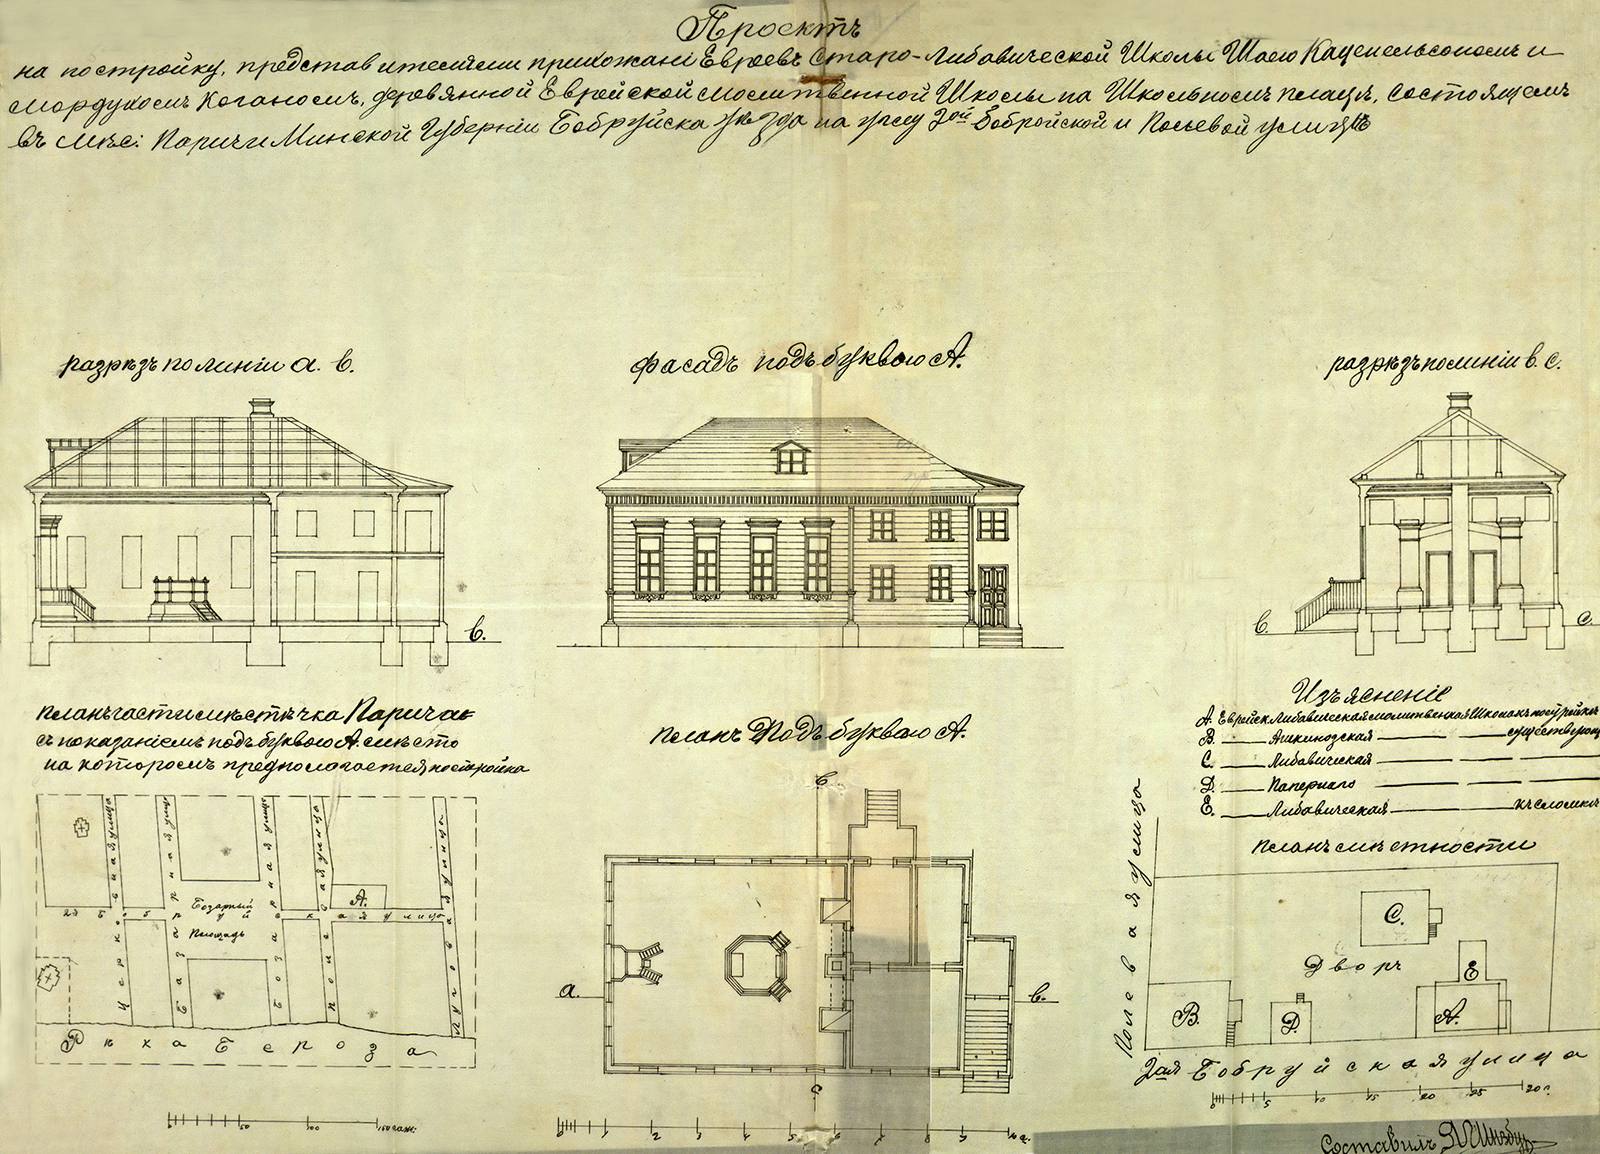 Проектъ
на постройку, представителями прихожанъ Евреевъ Старо-Либавической Школы Шаею Каценельсономъ и
Мордухомъ Коганомъ, деревянной Еврейской молитвенной Школы на Школьномъ плацѣ, состоящемъ
въ мѣс: Паричи Минской Губерніи Бобруйска уѣзда на углу 2ой Бобруйской и Полевой улицъ
разрѣзъ по линіи а. в.
фасадъ подъ буквою А.
разрѣзъ по линіи в. с.
в.
в.
с.
планъ части мѣстѣчка Парича
съ показаніемъ подъ буквою А. мѣсто
на которомъ предпологается постройка
планъ подъ буквою А.
Изъясненіе
А. Еврейск Либавическая молитвенная Школа къ постройкѣ
В. — Ашкинозская — существующ
С. — Либавическая — — —
Д. — Папернаго — — —
Е. — Либавическая — къ сломкѣ
планъ мѣстности
Церковная улица
Базарная улица
Базарная улица
Полевая улица
Луговая улица
2я Бобруйская улица
Базарный
Площадь
А.
Рѣка Береза
в
а.
в.
с
Полевая улица
С.
Дворъ
Е
В.
Д.
А.
2ая Бобруйская улица
0 50 100 150 саж:
0 1 2 3 4 5 6 7 8 9 10 с.
0 5 10 15 20 25
Составилъ